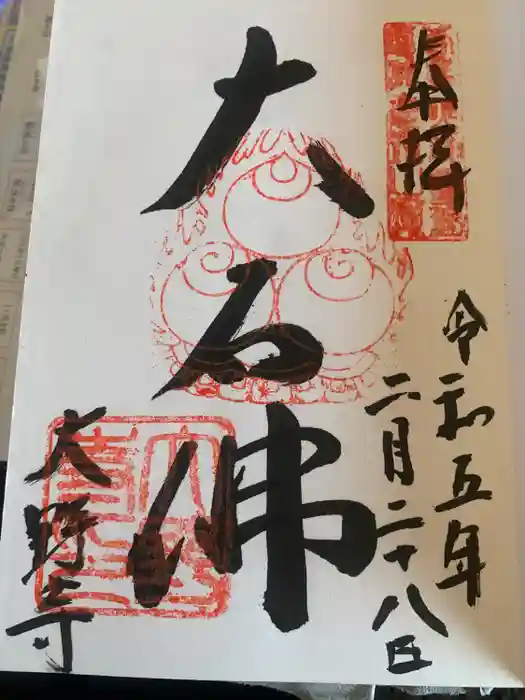 奉拝
令和五年
二月二十八日
大石佛
大野寺